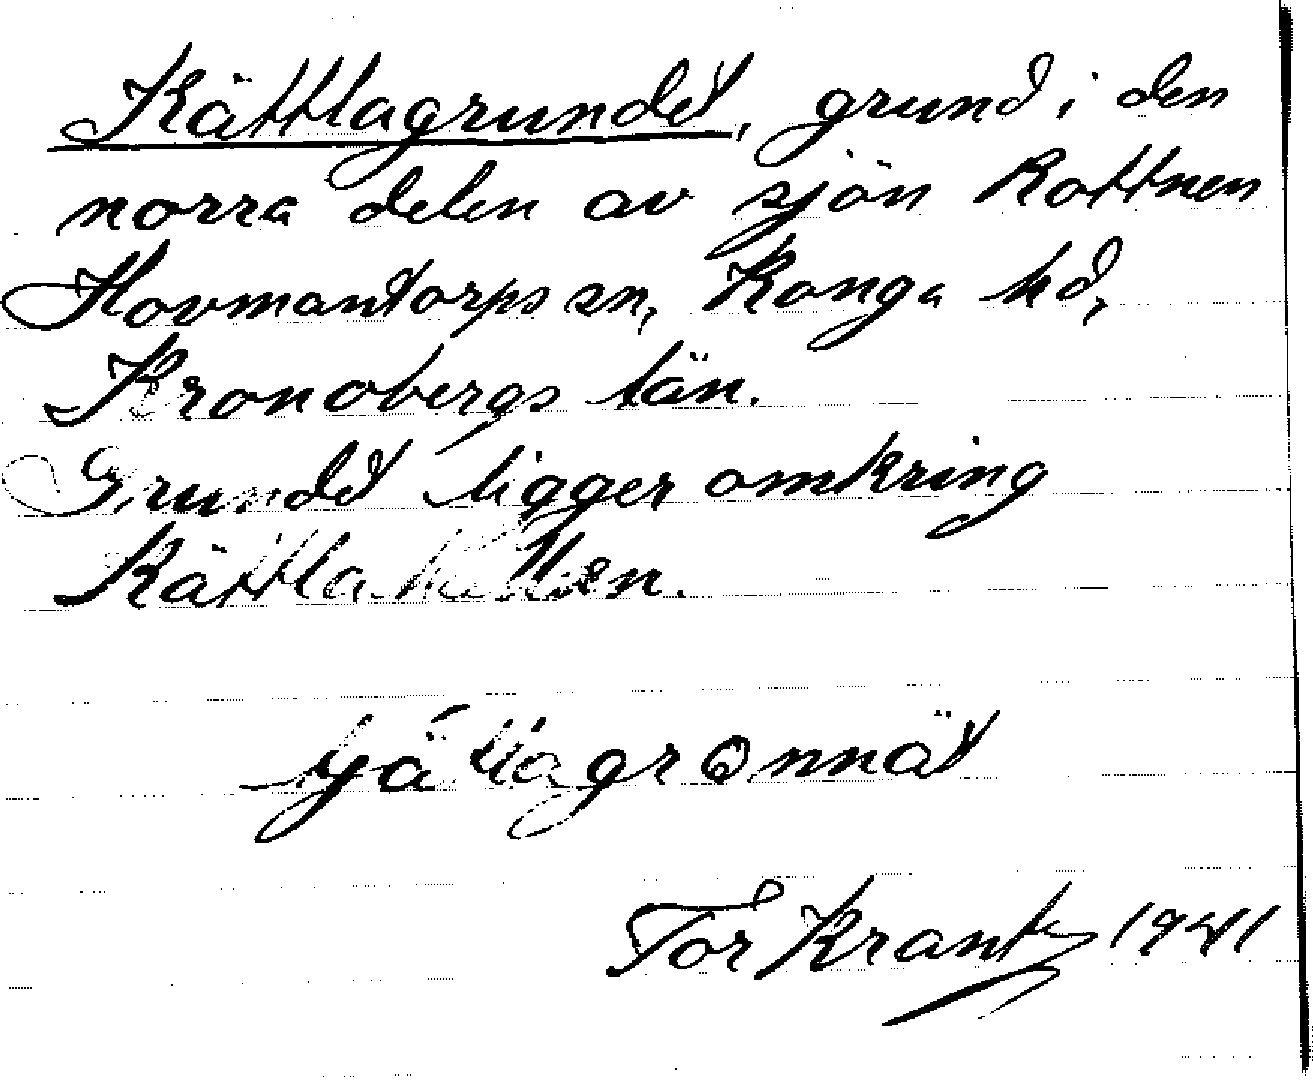 Kättlagrundet, grund i den
norra delen av sjön Rottnen
Hovmantorps sn, Konga hd,
Kronobergs län.
Grundet ligger omkring
Kättlahällen.
grönnät
Tor Krantz 1941